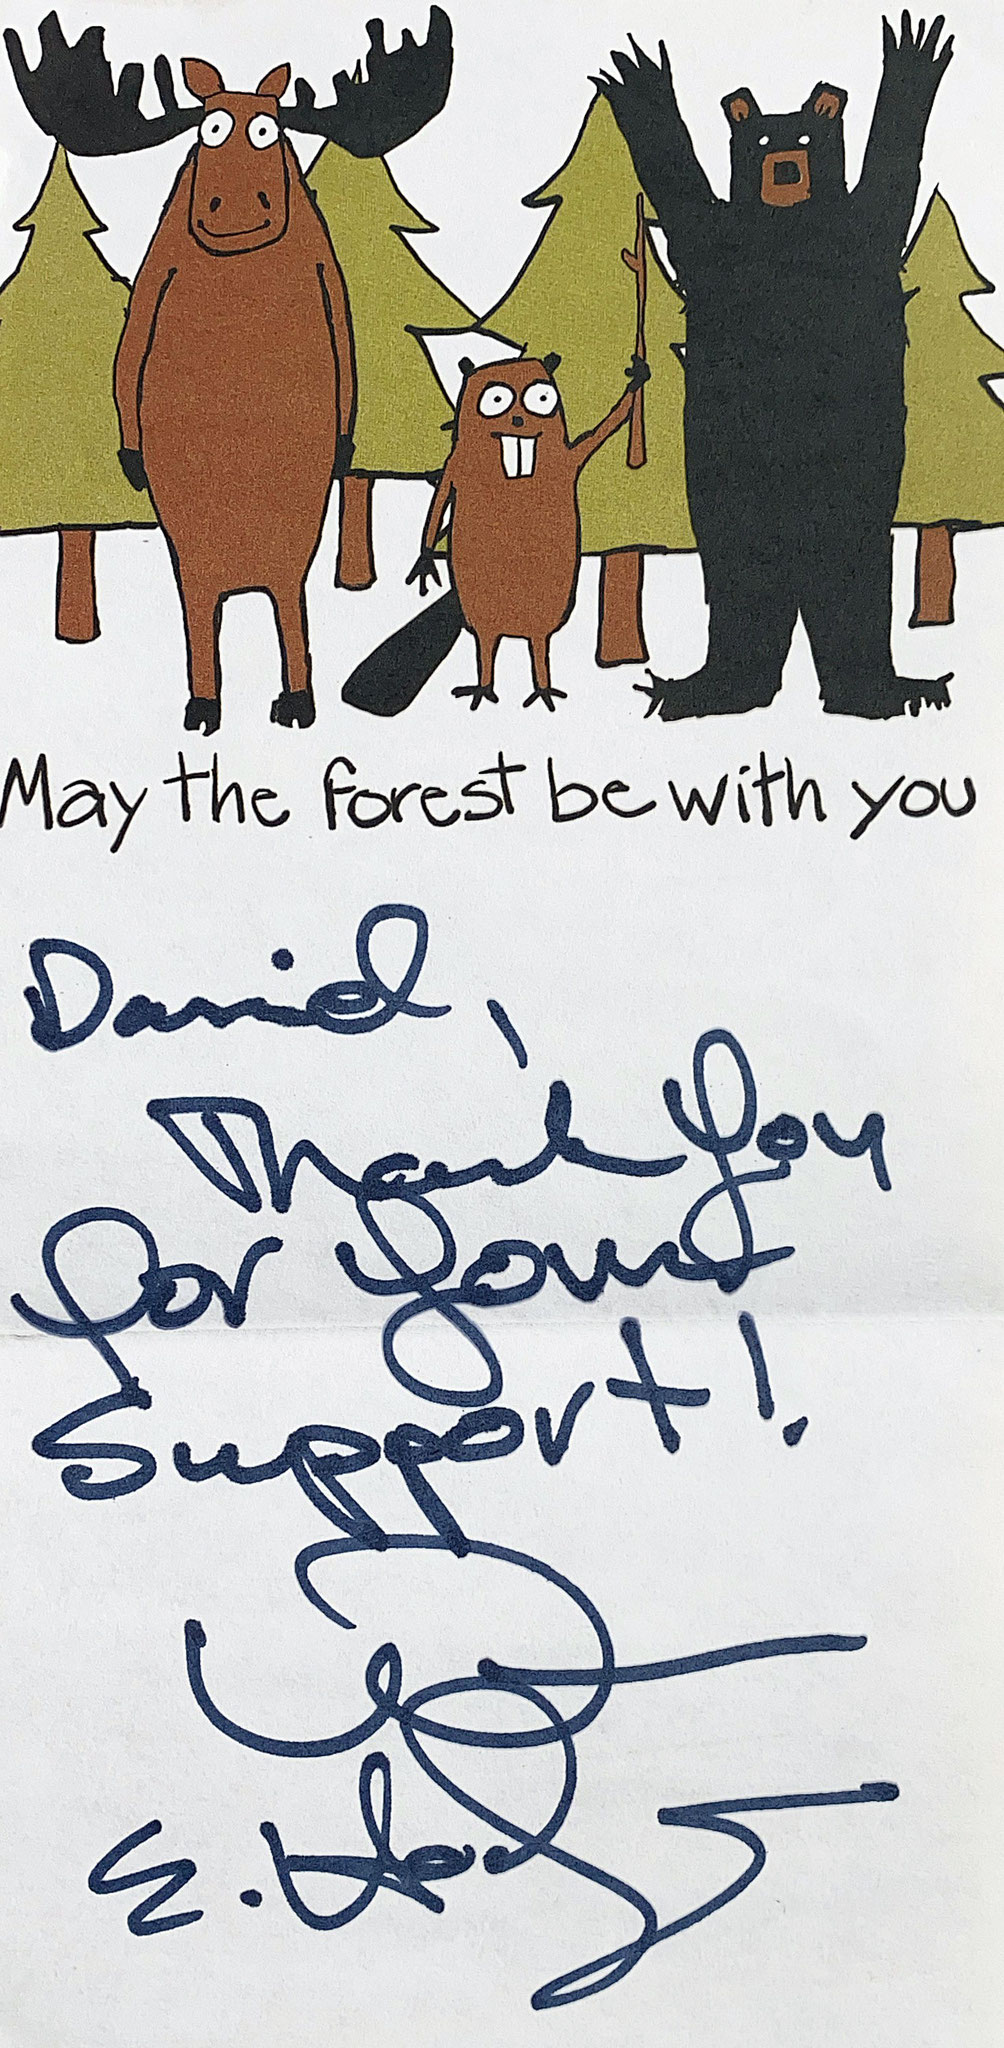 May the forest be with you
Daniel,
Thank you
for your
Support!